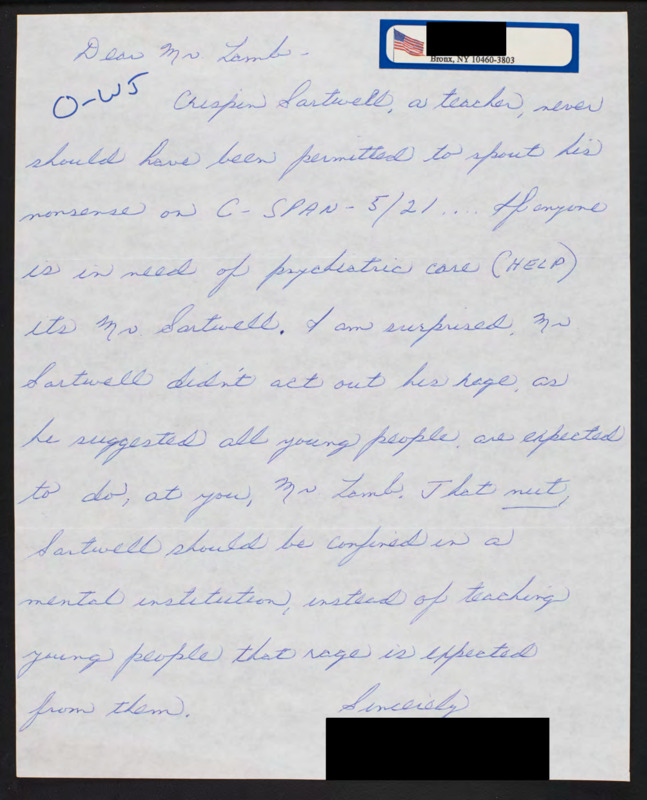 Bronx, NY 10460-3803
Dear Mr Lamb -
O-WJ
Crispin Sartwell, a teacher, never
should have been permitted to spout his
nonsense on C-SPAN - 5/21.... If anyone
is in need of psychiatric care (HELP)
its Mr. Sartwell. I am surprised, Mr
Sartwell didn't act out his rage, as
he suggested all young people are expected
to do, at you, Mr Lamb. That nut,
Sartwell should be confined in a
mental institution, instead of teaching
young people that rage is expected
from them.
Sincerely